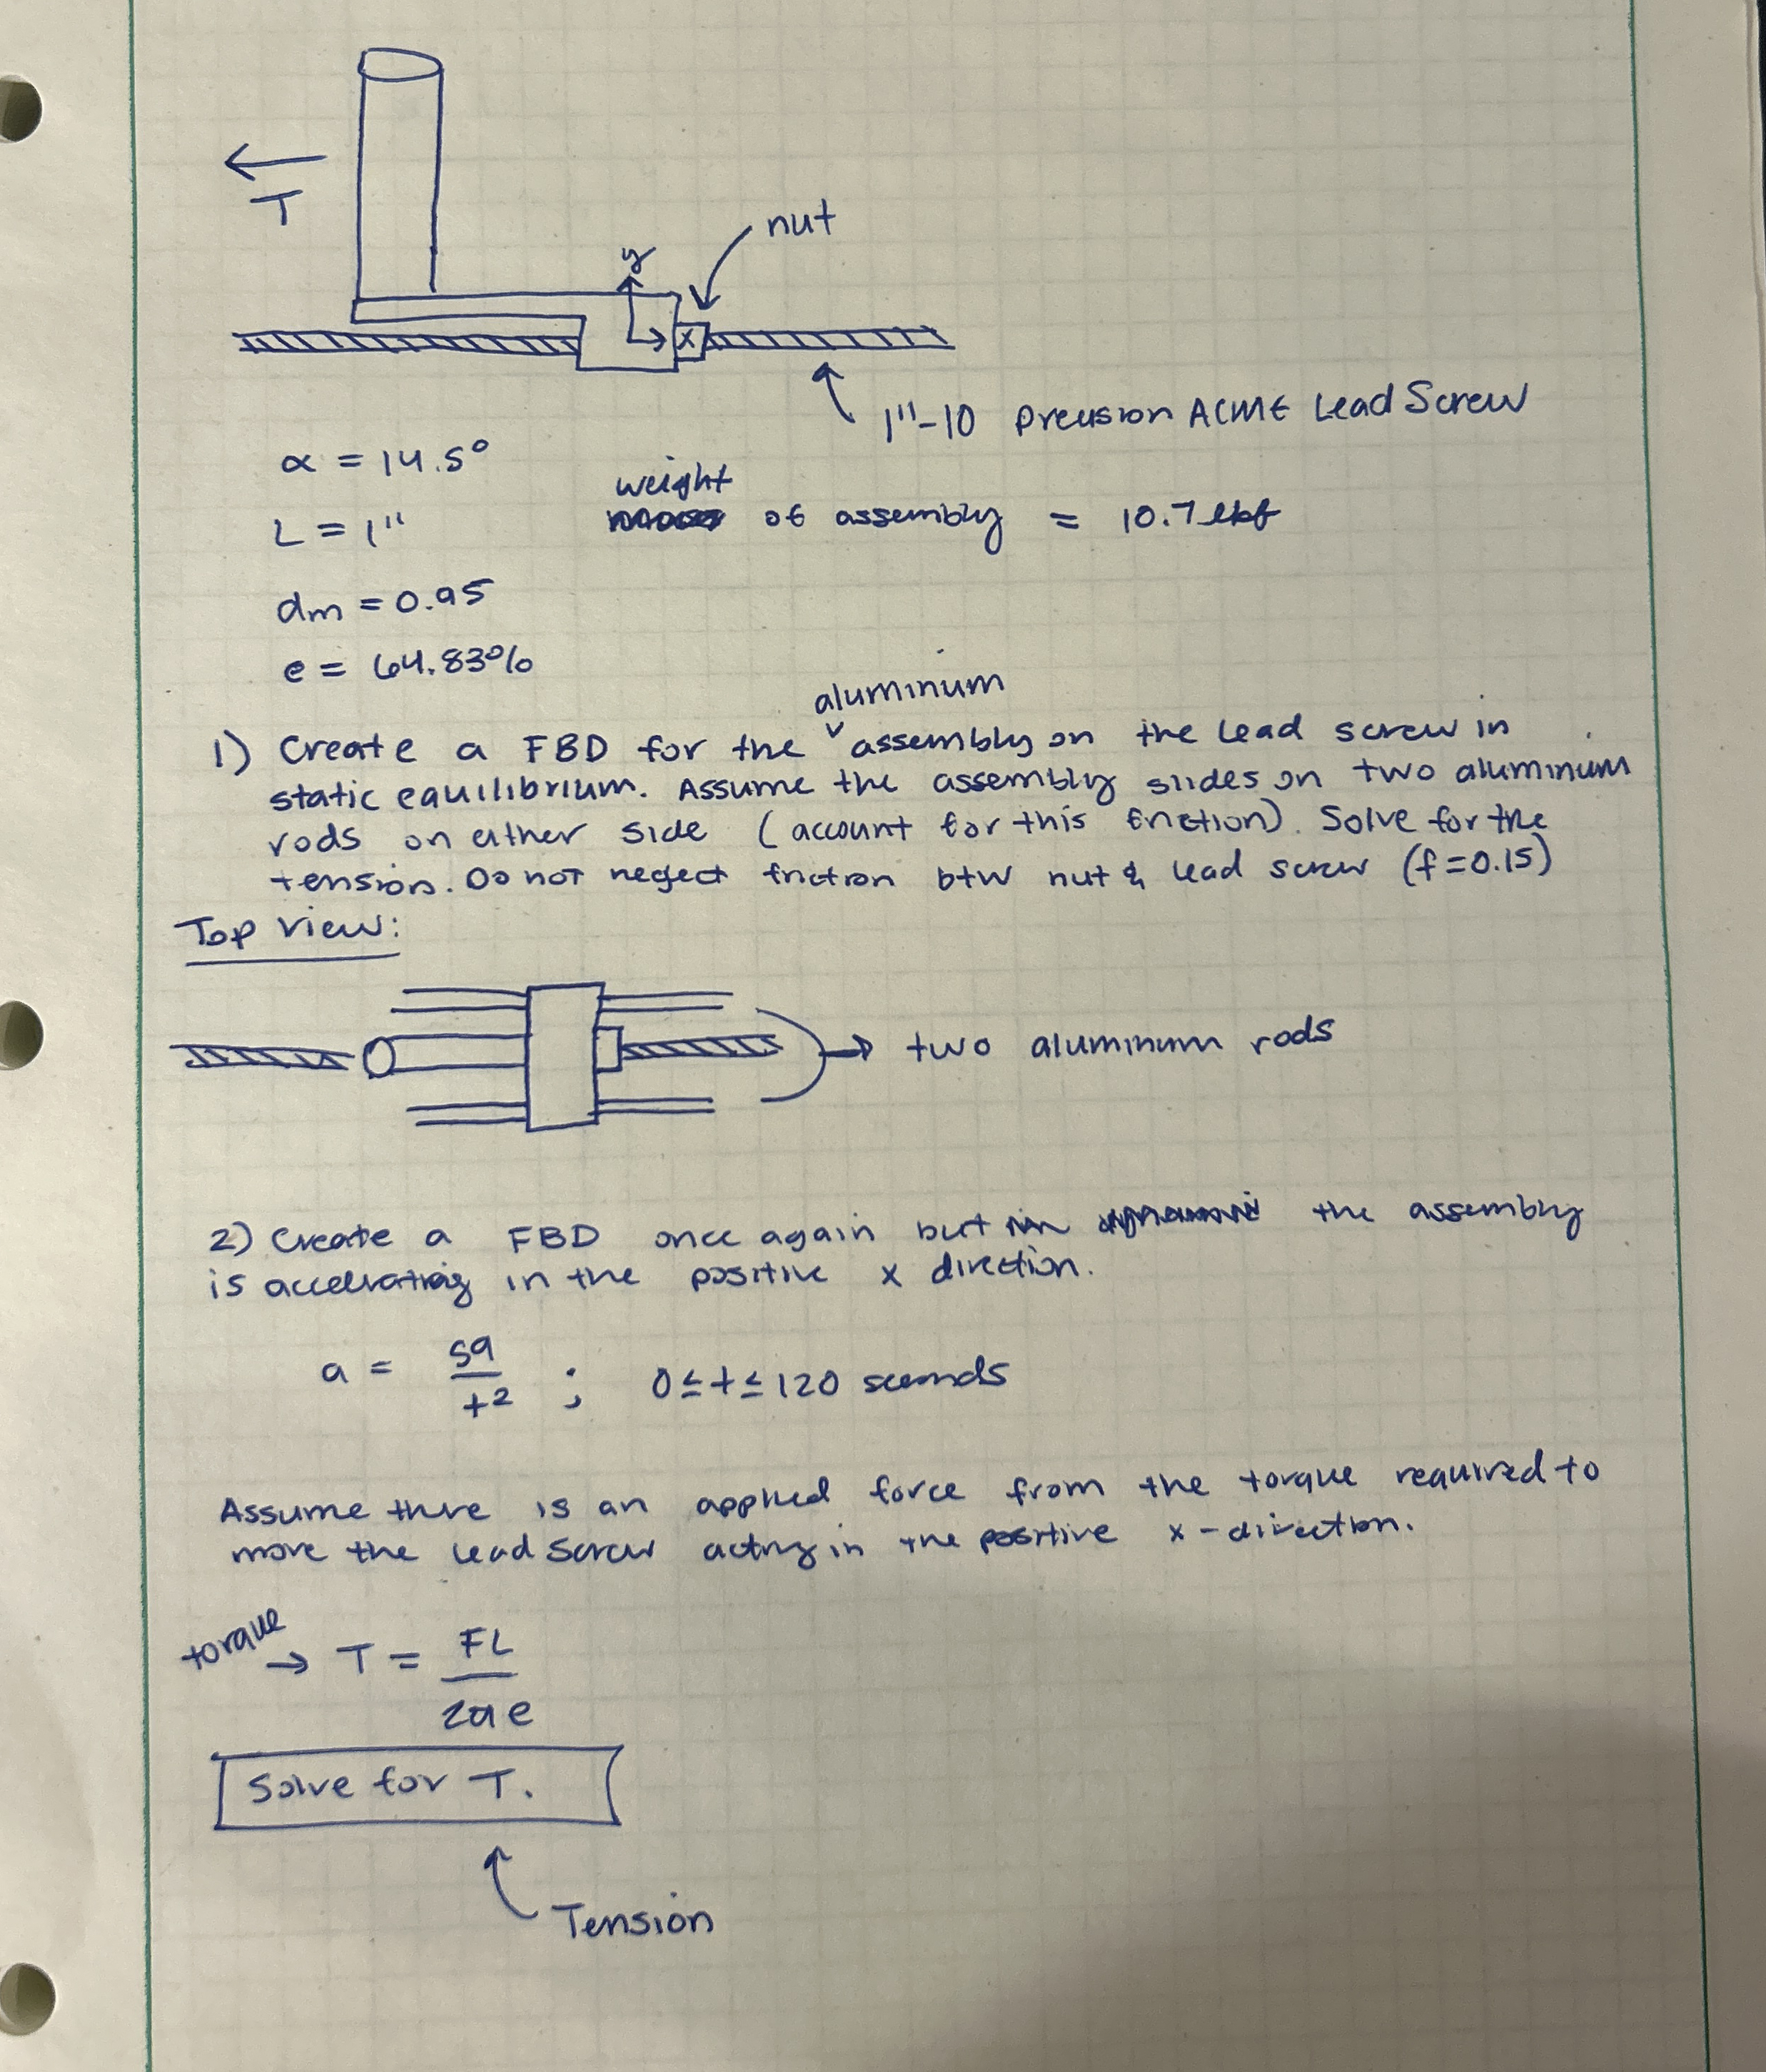 T
nut
y
x
1"-10 Precision ACME Lead Screw
α = 14.5°
weight
of assembly = 10.7 lbf
L = 1"
dm = 0.95
e = 64.83%
aluminum
1) Create a FBD for the ˅ assembly on the lead screw in
static equilibrium. Assume the assembly slides on two aluminum
rods on either side (account for this friction). Solve for the
tension. Do not neglect friction btw nut & lead screw (f=0.15)
Top View:
two aluminum rods
2) Create a FBD once again but the assembly
is accelrating in the positive x direction.
a = 59/t² ; 0≤t≤120 seconds
Assume there is an applied force from the torque required to
move the lead screw acting in the positive x-direction.
torque → T = FL/2πe
Solve for T.
Tension